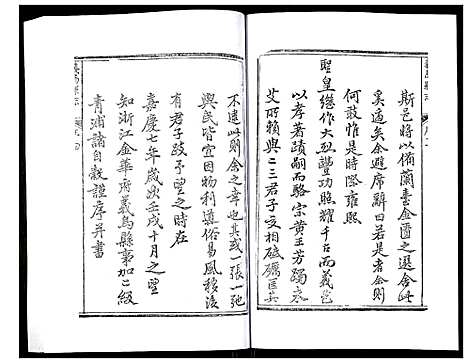 斯邑將以備蘭臺金匱之選舍此
奚適矣余避席辭曰若是者余則
何敢惟是時際雍熙
聖皇繼作大烈豐功照耀千古而義邑
以孝著蹟嗣而駱宗黃王芳躅未
艾所賴與二三君子交相砥礪匡其
不逮此則余之幸也其或一張一弛
與民皆宜因物利導俗易風移後
有君子跂予望之時在
嘉慶七年歲次壬戌十月之望
知浙江金華府義烏縣事加二級
青浦諸自穀謹序并書